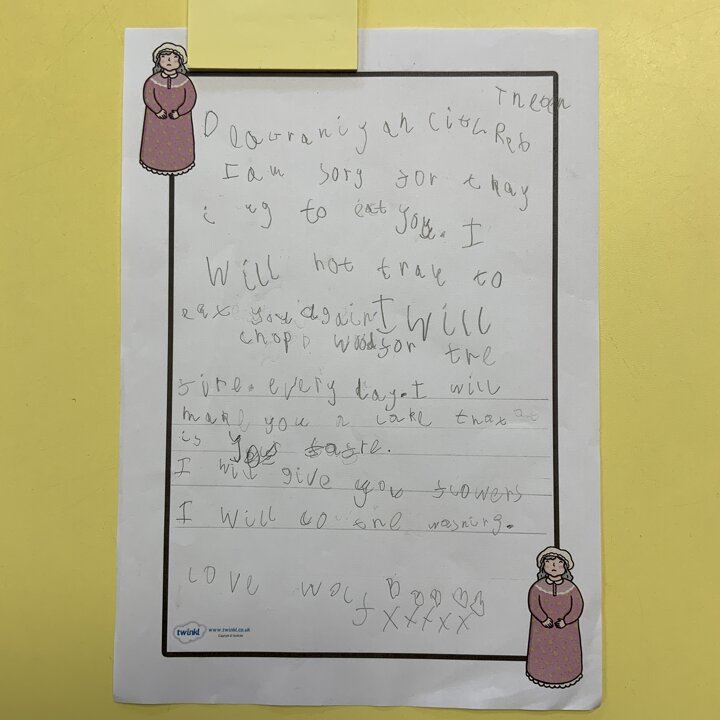 D eaur aniy ah citL Reb
I am sorg for thay
i ng to eat you. I
Will not tray to
eat you again I Will
chop wood for the
fire. every day. I will
make you a cake that
is your
I will give you flowers
I will do the washing.
love wolf
XXXXX
twinkl www.twinkl.co.uk